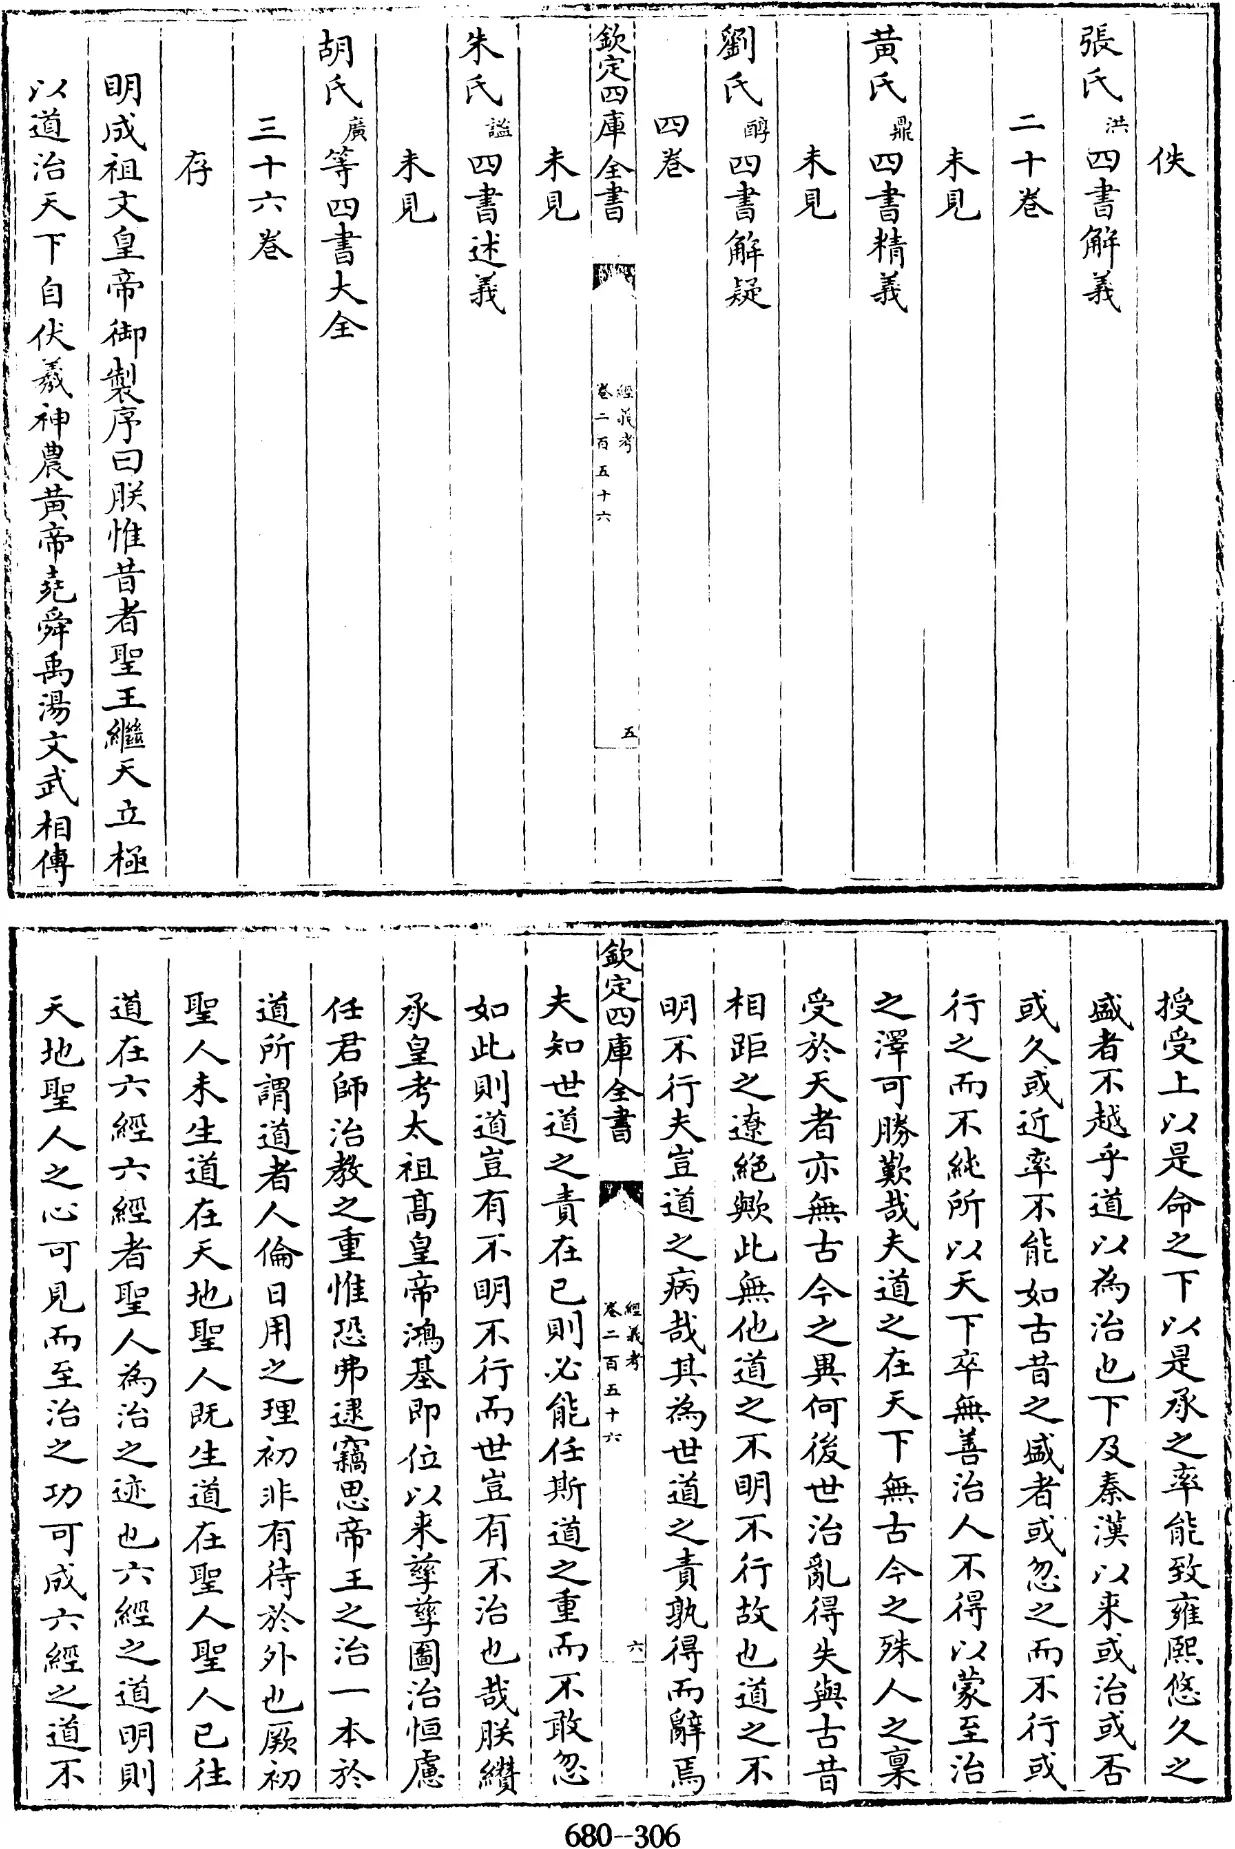 佚
張氏洪四書解義
二十卷
未見
黄氏鼎四書精義
未見
劉氏醇四書解疑
四卷
未見
欽定四庫全書
經義考
卷二百五十六
五
朱氏謚四書述義
未見
胡氏廣等四書大全
三十六卷
存
明成祖文皇帝御製序曰朕惟昔者聖王繼天立極
以道治天下自伏羲神農黄帝堯舜禹湯文武相傳
授受上以是命之下以是承之率能致雍熙悠久之
盛者不越乎道以為治也下及秦漢以來或治或否
或久或近率不能如古昔之盛者或忽之而不行或
行之而不純所以天下卒無善治人不得以蒙至治
之澤可勝歎哉夫道之在天下無古今之殊人之稟
受於天者亦無古今之異何後世治亂得失與古昔
相距之遼絕歟此無他道之不明不行故也道之不
明不行夫豈道之病哉其為世道之責孰得而辭焉
欽定四庫全書
經義考
卷二百五十六
六
夫知世道之責在已則必能任斯道之重而不敢忽
如此則道豈有不明不行而世豈有不治也哉朕纘
承皇考太祖高皇帝鴻基即位以來孳孳圖治恒慮
任君師治教之重惟恐弗逮竊思帝王之治一本於
道所謂道者人倫日用之理初非有待於外也厥初
聖人未生道在天地聖人既生道在聖人聖人已往
道在六經六經者聖人為治之迹也六經之道明則
天地聖人之心可見而至治之功可成六經之道不
680--306